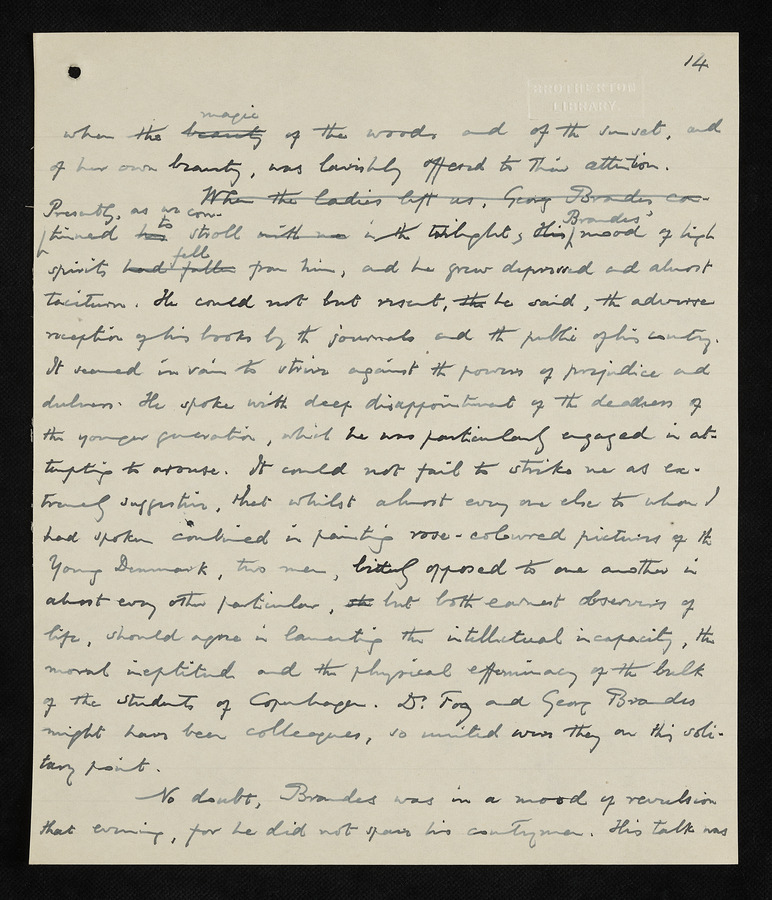 14
BROTHERTON
LIBRARY.
magic
when the beauty of the woods and of the sunset, and
of her own beauty, was lavishly offered to their attention.
When the ladies left us, Georg Brandes co-
Presently, as we con-
to
Brandes'
tinued his stroll with me in the twilight, this mood of high
fell
spirits had fallen from him, and he grew depressed and almost
taciturn. He could not but resent, the he said, the adverse
reception of his books by the journals and the public of his country.
It seemed in vain to strive against the powers of prejudice and
dulness. He spoke with deep disappointment of the deadness of
the younger generation, which he was particularly engaged in at-
tempting to arouse. It could not fail to strike me as ex-
tremely suggestive, that whilst almost every one else to whom I
had spoken combined in painting rose-coloured pictures of the
Young Denmark, two men, bitterly opposed to one another in
almost every other particular, but both earnest observers of
life, should agree in lamenting the intellectual incapacity, the
moral ineptitude and the physical effeminacy of the bulk
of the students of Copenhagen. Dr. Fog and Georg Brandes
might have been colleagues, so united were they on this soli-
tary point.
No doubt, Brandes was in a mood of revulsion
that evening, for he did not spare his countrymen. His talk was